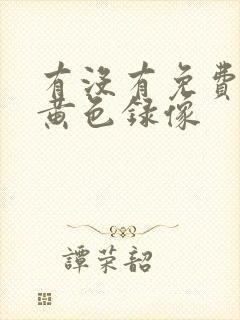 有没有免費
黄色録像
譚荣韶